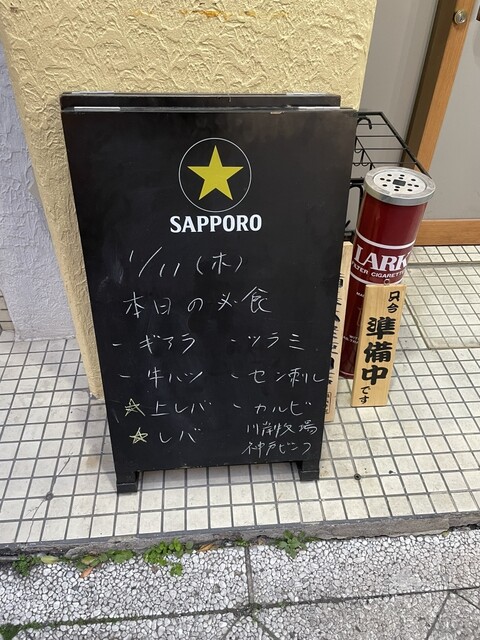 SAPPORO
1/11(木)
本日の必食
- ギアラ
- ツラミ
- 牛ハツ
- センマイ刺し
☆上レバ
- カルビ
☆レバ
川岸牧場
神戸ビーフ
LARK
FILTER CIGARETTES
只今
準備中
です